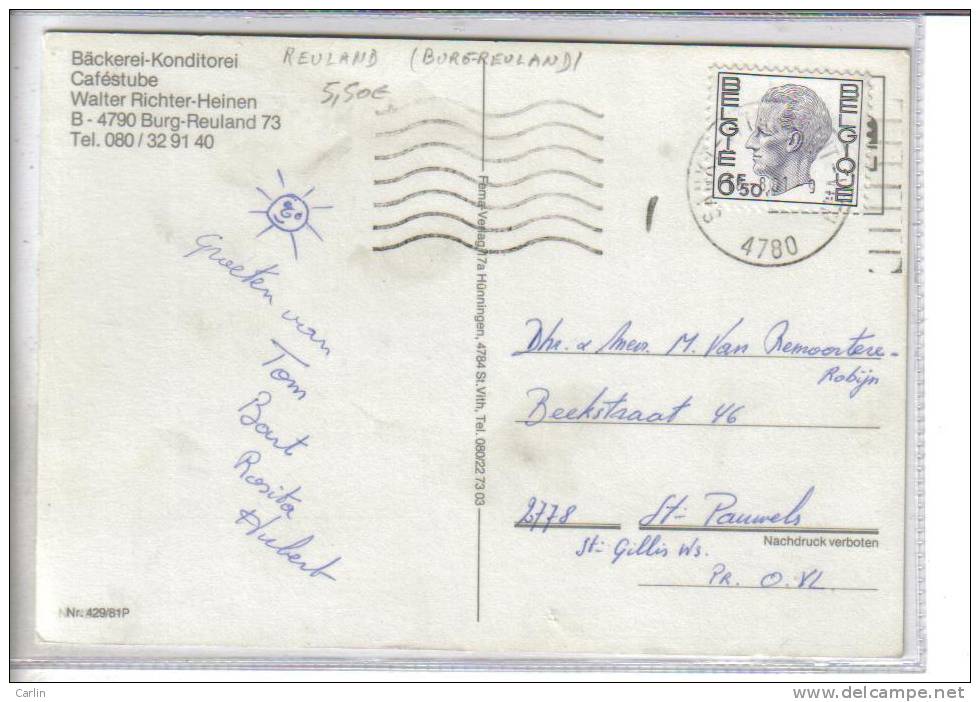 Bäckerei-Konditorei
Caféstube
Walter Richter-Heinen
B - 4790 Burg-Reuland 73
Tel. 080 / 32 91 40
REULAND (BURG-REULAND)
5,50€
BELGIE
BELGIQUE
6F50
4780
Groeten van
Tom
Bart
Rosita
Hubert
Fema-Verlag, 17a Hünningen, 4784 St. Vith, Tel. 080/22 73 03
Dhr. & Mevr. M. Van Remoortere-
Robijn
Beekstraat 46
2778 St-Pauwels
Nachdruck verboten
St-Gillis Ws.
PR. O.VL
Nr. 429/81P
Carlin
www.delcampe.net